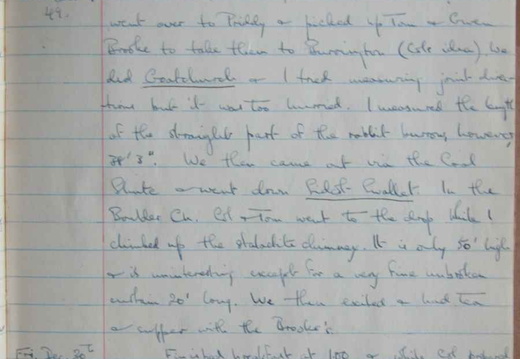 49.
went over to Priddy & picked up Tom & Gwen
Brooke to take them to Burrington (Cols idea) We
did Goatchurch & I tried measuring joint direc-
tions but it was too hurried. I measured the length
of the straight part of the rabbit burrow, however
38' 3". We then came out via the Coal
Shute & went down Sidcot Swallet. In the
Boulder Ch. Col & Tom went to the drop while I
climbed up the stalactite chimney. It is only 50' high
& is uninteresting except for a very fine unbroken
curtain 20' long. We then exited & had tea
& supper with the Brooke's.
Fri Dec 30th Finished breakfast at 100 & while Col